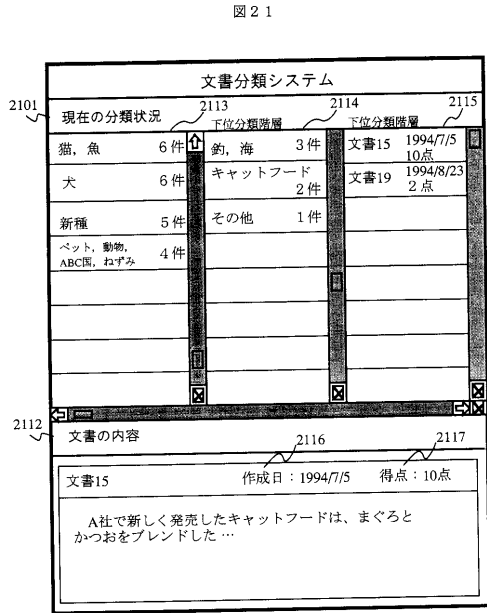 図21
文書分類システム
2101
現在の分類状況
2113
下位分類階層
2114
下位分類階層
2115
猫, 魚 6件
犬 6件
新種 5件
ペット, 動物,
ABC国, ねずみ 4件
釣, 海 3件
キャットフード
2件
その他 1件
文書15 1994/7/5
10点
文書19 1994/8/23
2点
2112
文書の内容
2116
2117
文書15 作成日：1994/7/5 得点：10点
A社で新しく発売したキャットフードは、まぐろと
かつおをブレンドした…